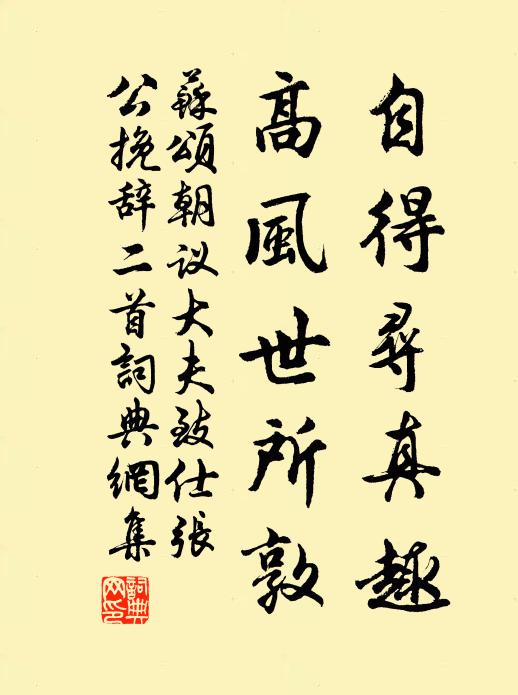 自得尋真趣
高風世所敦
蘇頌朝议大夫致仕張
公挽辞二首詞典網集
詞典网印